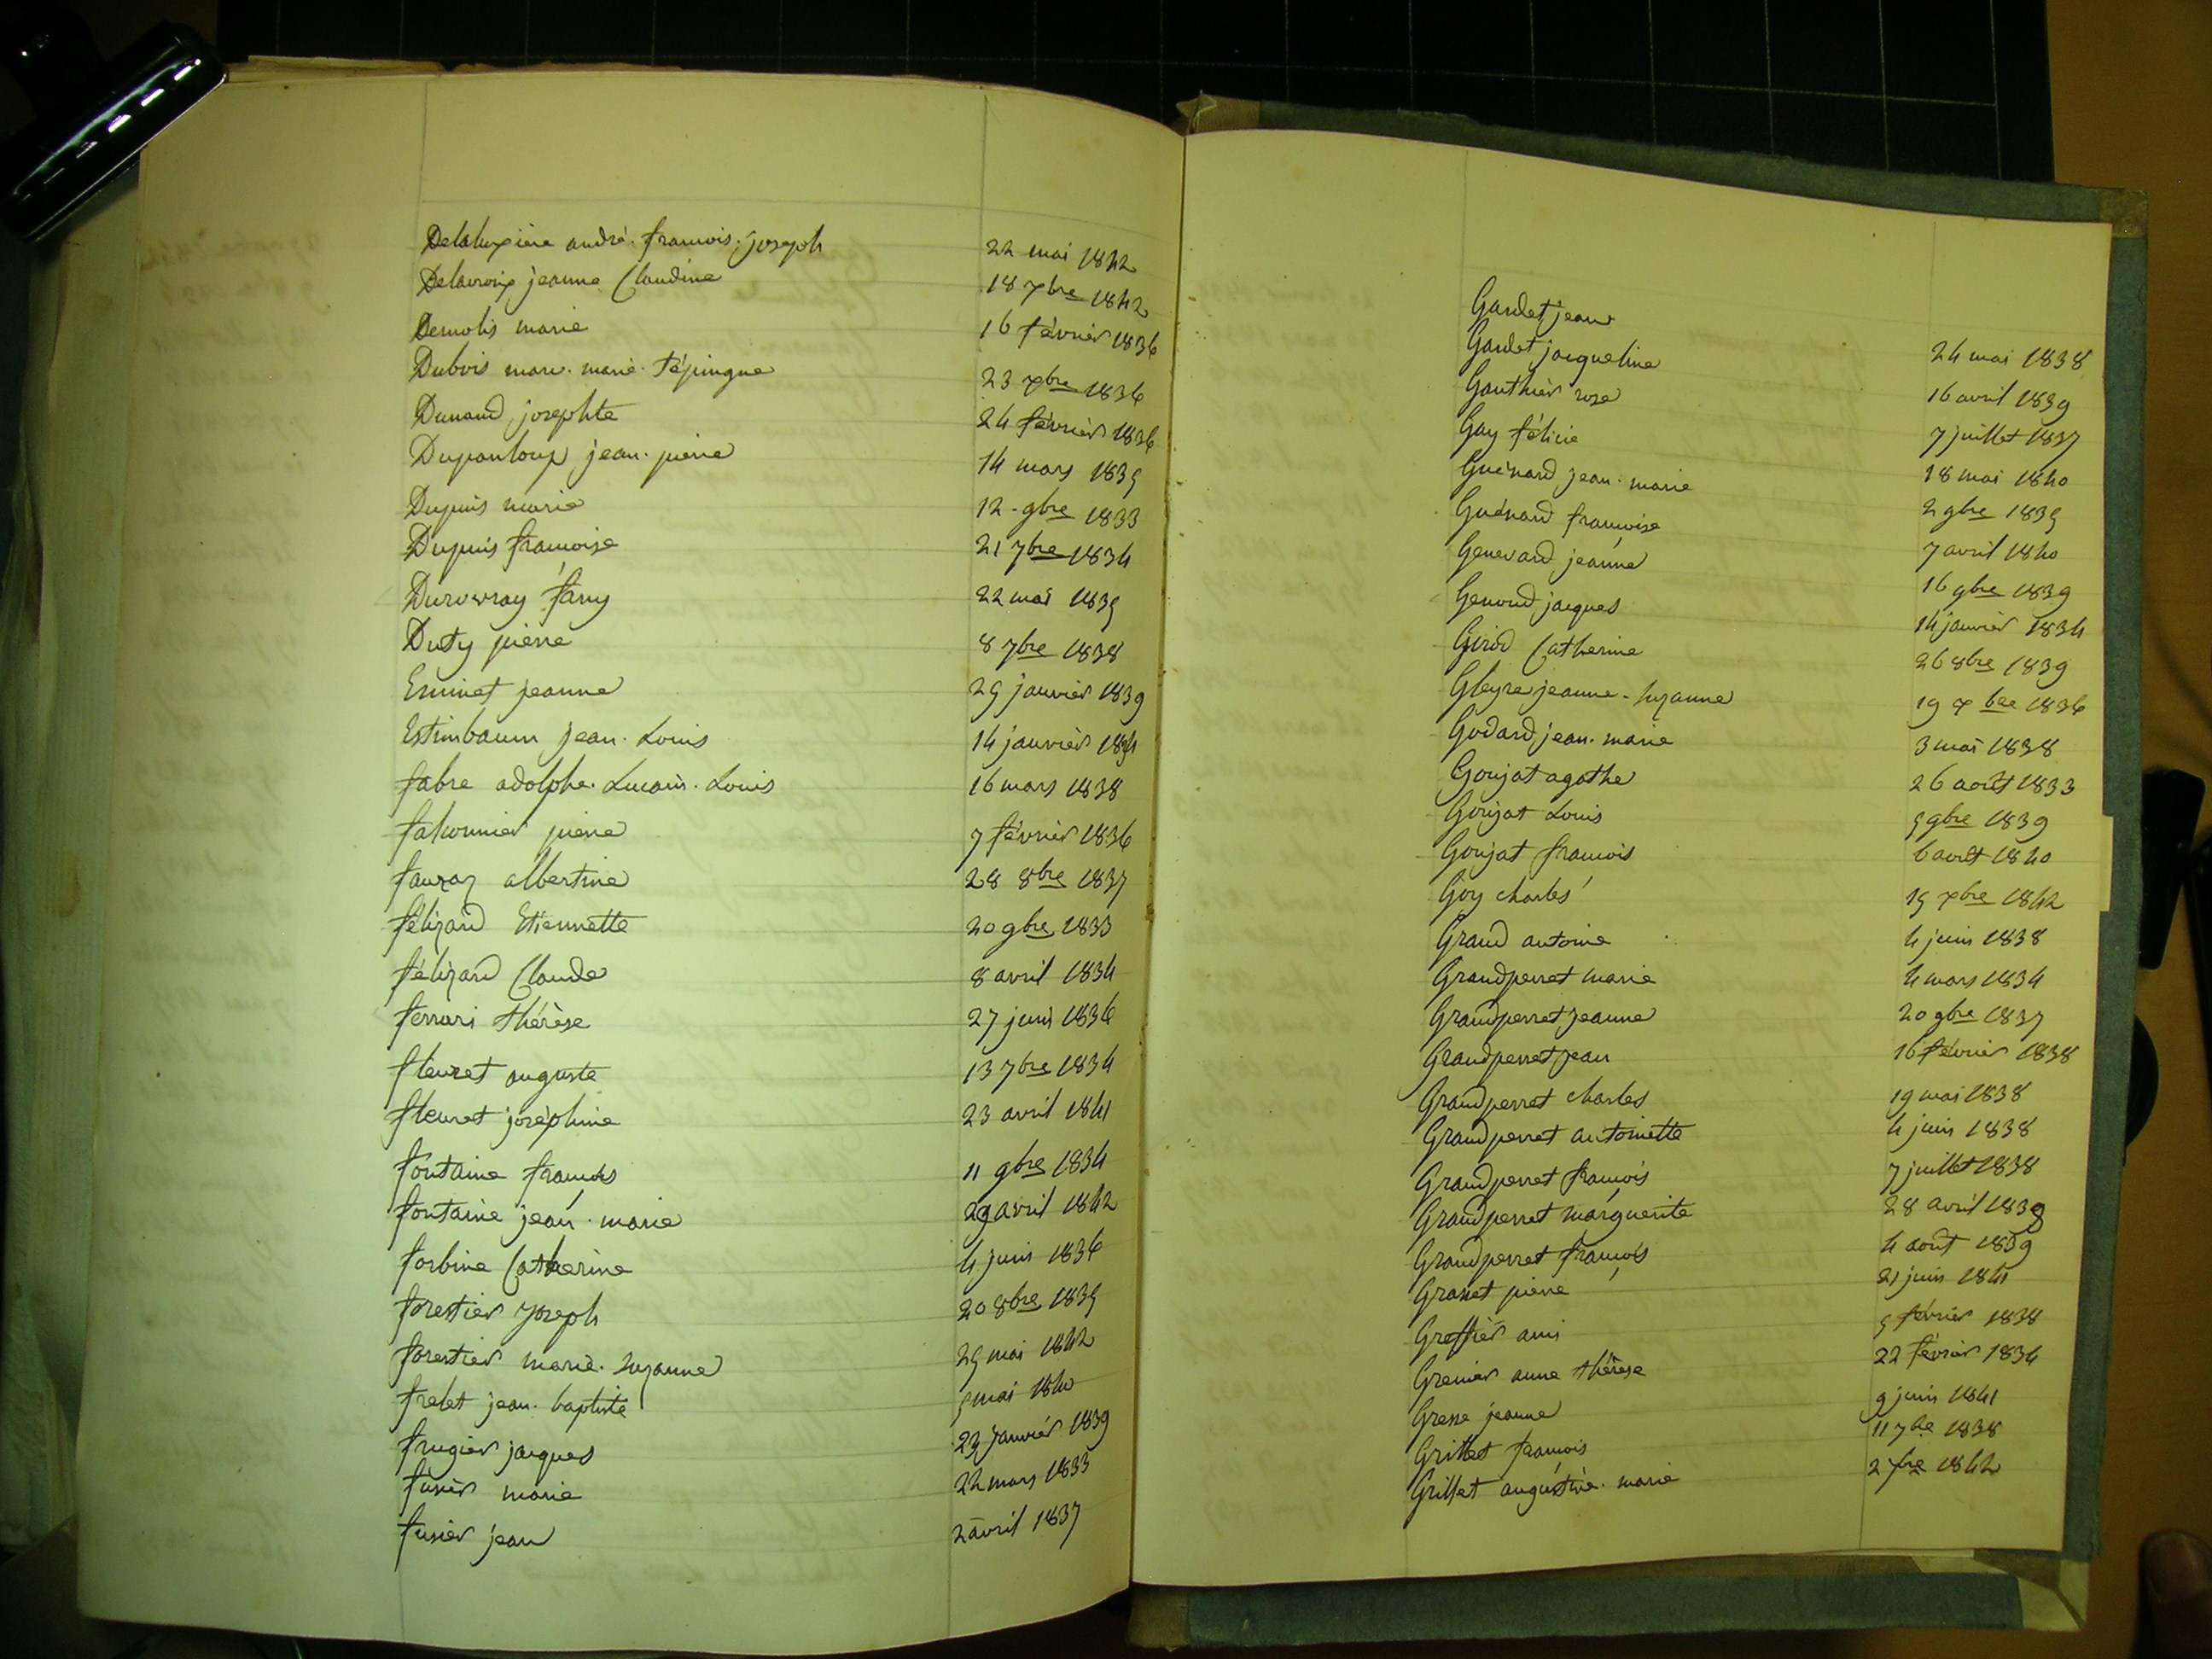 Delaluxière andré. francois. joseph 22 mai 1842
Delacroix jeanne Claudine 18 xbre 1842
Demolis marie 16 février 1836
Dubois marc. marie. 23 xbre 1836
Dunand josephte 24 février 1836
Dupanloup jean. pierre 14 mars 1835
Dupuis marie 12 - 9bre 1833
Dupuis francoise 21 7bre 1834
Duroveray fany 22 mai 1835
Duty pierre 8 7bre 1838
Eminet jeanne 25 janvier 1839
Estimbaum jean. Louis 14 janvier
fabre adolphe. Lucain. Louis 16 mars 1838
falconnier pierre 7 février 1836
fauraz albertine 28 8bre 1837
félizard Etiennette 20 9bre 1833
félizard Claude 8 avril 1834
ferrari thérèse 27 juin 1836
fleuret auguste 13 7bre 1834
fleuret joséphine 23 avril 1841
fontaine francois 11 9bre 1834
fontaine jean. marie 29 avril 1842
forbine Catherine 4 juin 1836
forestier joseph 20 8bre 1835
forestier marie. Suzanne 25 mai 1842
frelet jean. baptiste 5 mai 1840
frugier jacques 23 janvier 1839
fusier marie 22 mars 1833
fusier jean 2 avril 1837
Gardet jean 24 mai 1838
Gardet jacqueline 16 avril 1839
Gauthier rose 7 juillet 1837
Gay félicie 18 mai 1840
Guénard jean. marie 2 9bre 1835
Guénard francoise 7 avril 1840
Genevard jeanne 16 9bre 1839
Genoud jacques 14 janvier 1834
Girod Catherine 26 8bre 1839
Gleyre jeanne. Suzanne 19 xbre 1836
Godard jean. marie 3 mai 1838
Goujat agathe 26 août 1833
Goujat Louis 5 9bre 1839
Goujat francois 6 avril 1840
Goy charles 15 xbre 1842
Grand antoine 4 juin 1838
Grandperret marie 4 mars 1834
Grandperret jeanne 20 9bre 1837
Grandperret jean 16 février 1838
Grandperret charles 19 mai 1838
Grandperret antoinette 4 juin 1838
Grandperret francois 7 juillet 1838
Grandperret marguerite 28 avril 1839
Grandperret francois 4 août 1839
Granet pierre 21 juin 1841
Greffier ami 5 février 1838
Grenier anne thérèse 22 février 1834
Gresse jeanne 9 juin 1841
Grillet francois 11 7bre 1838
Grillet augustine. marie 2 7bre 1842